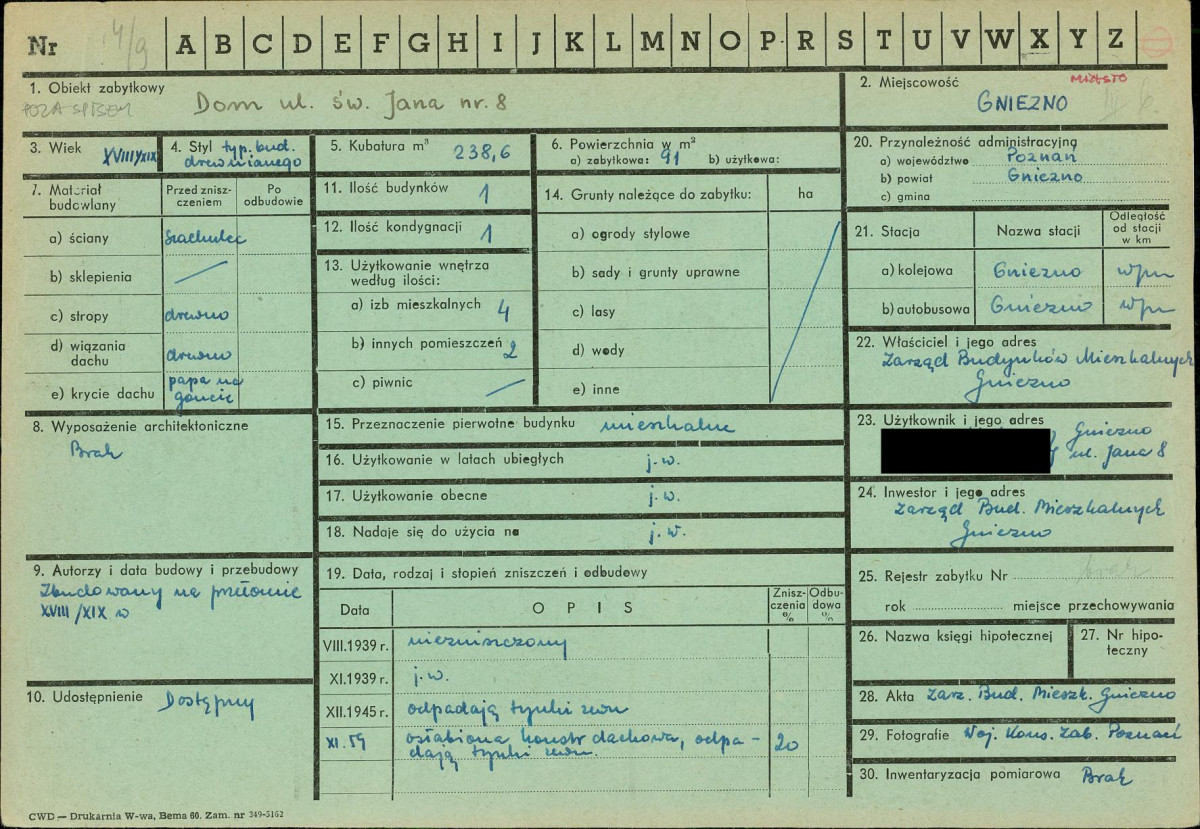 Nr 14/9 A B C D E F G H I J K L M N O P R S T U V W X Y Z
1. Obiekt zabytkowy
POZA SPISEM
Dom ul. św. Jana nr. 8
2. Miejscowość
MIASTO
GNIEZNO
3. Wiek XVIII/XIX
4. Styl typ. bud.
drewnianego
5. Kubatura m³ 238,6
6. Powierzchnia w m²
a) zabytkowa: 91 b) użytkowa:
20. Przynależność administracyjna
a) województwo Poznań
b) powiat Gniezno
c) gmina
7. Materiał budowlany
Przed zniszczeniem
Po odbudowie
a) ściany szachulec
b) sklepienia
c) stropy drewno
d) wiązania dachu drewno
e) krycie dachu papa na
goncie
11. Ilość budynków 1
12. Ilość kondygnacji 1
13. Użytkowanie wnętrza
według ilości:
a) izb mieszkalnych 4
b) innych pomieszczeń 2
c) piwnic
14. Grunty należące do zabytku: ha
a) ogrody stylowe
b) sady i grunty uprawne
c) lasy
d) wody
e) inne
21. Stacja Nazwa stacji Odległość
od stacji
w km
a) kolejowa Gniezno
b) autobusowa Gniezno
22. Właściciel i jego adres
Zarząd Budynków Mieszkalnych
Gniezno
8. Wyposażenie architektoniczne
Brak
15. Przeznaczenie pierwotne budynku mieszkalne
16. Użytkowanie w latach ubiegłych j.w.
17. Użytkowanie obecne j.w.
18. Nadaje się do użycia na j.w.
23. Użytkownik i jego adres
Gniezno
ul. Jana 8
24. Inwestor i jego adres
Zarząd Bud. Mieszkalnych
Gniezno
9. Autorzy i data budowy i przebudowy
Zbudowany na przełomie
XVIII/XIX w
10. Udostępnienie Dostępny
19. Data, rodzaj i stopień zniszczeń i odbudowy
Data OPIS Zniszczenia % Odbudowa %
VIII.1939 r. niezniszczony
XI.1939 r. j.w.
XII.1945 r. odpadają tynki zewn
XI.59 osłabiona konstr dachowa, odpa- 20
dają tynki zewn.
25. Rejestr zabytku Nr brak
rok miejsce przechowywania
26. Nazwa księgi hipotecznej
27. Nr hipoteczny
28. Akta Zarz. Bud. Mieszk. Gniezno
29. Fotografie Woj. Kons. Zab. Poznań
30. Inwentaryzacja pomiarowa Brak
CWD — Drukarnia W-wa, Bema 60. Zam. nr 349-5162